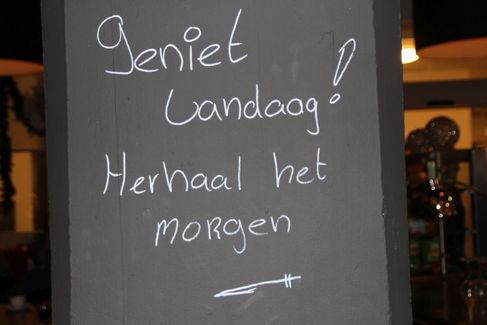 Geniet
vandaag!
Herhaal het
morgen